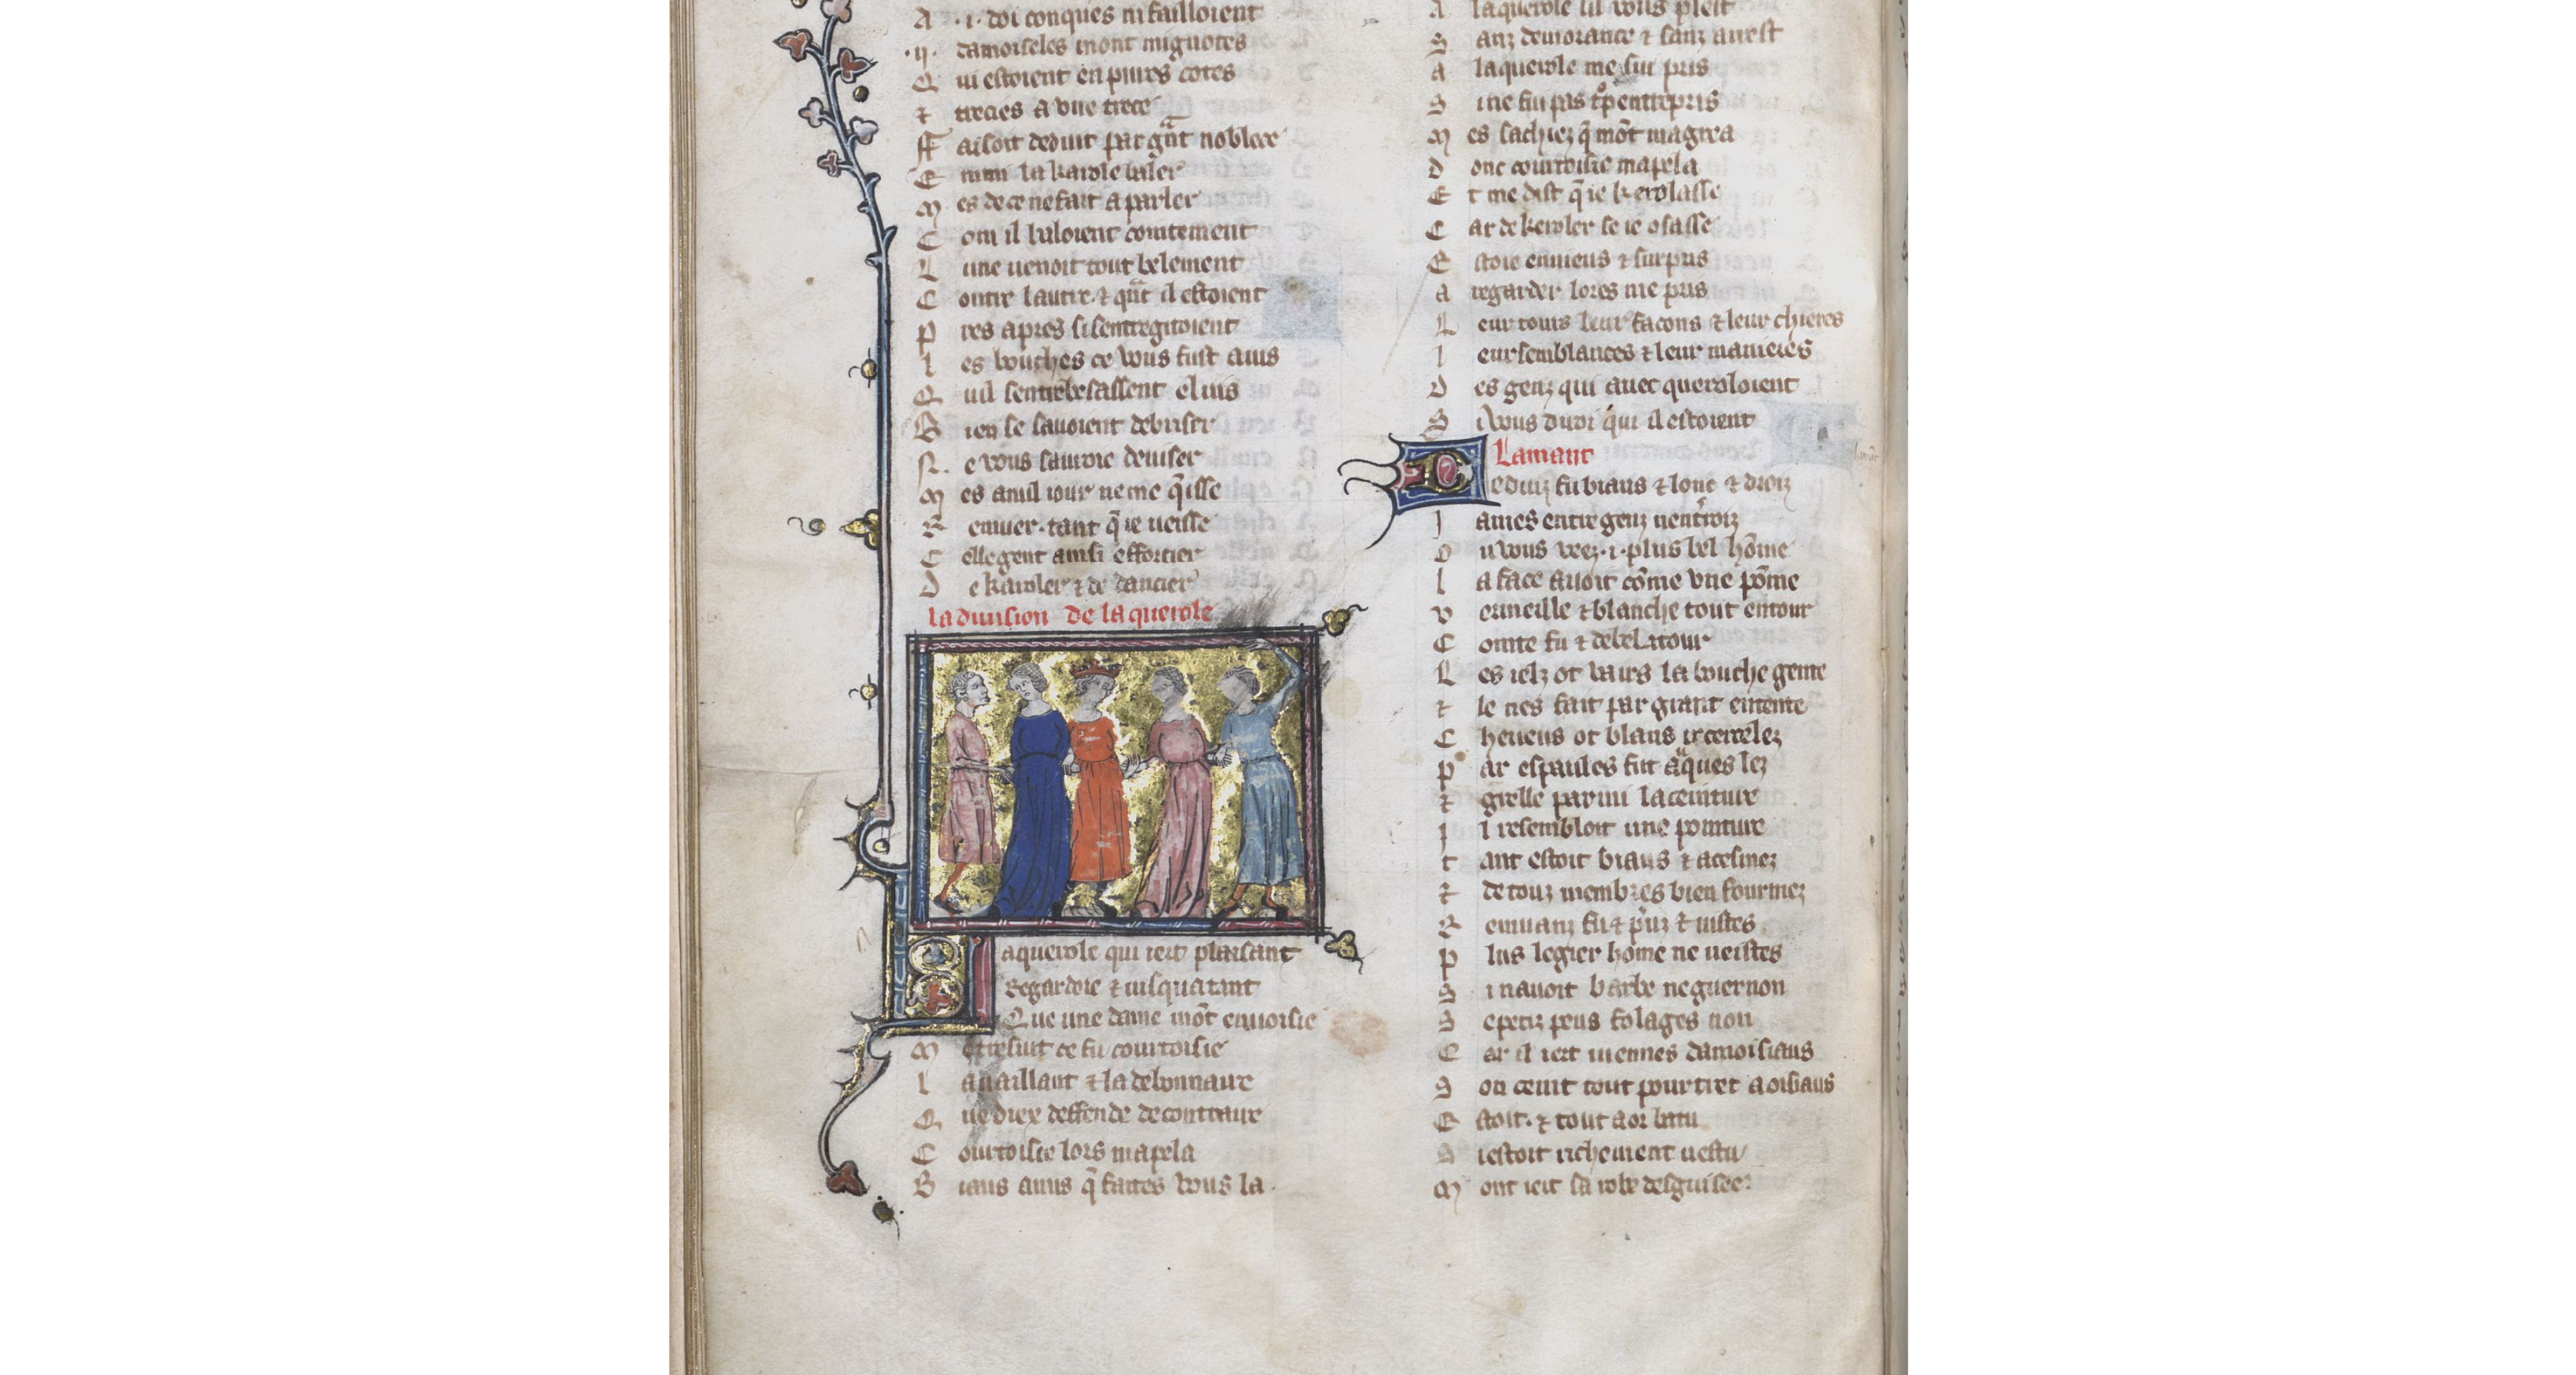 A .i. doi conques ni failloient
.ij. damoiseles mont mignotes
Q ui estoient en pures cotes
⁊ trecies a une trece
ff aisoit deduit par gñt noblece
E nmi la karole baler
M es de ce ne fait a parler
C om il baloient cointement
L une venoit tout belement
C ontre lautre. ⁊ qñt il estoient
P res apres si sentregitoient
l es bouches ce vous fust avis
Q uil sentrebesassent el vis
B ien se savoient debrisier
N e vous sauroie deviser
M es a nul iour ne me q̃isse
R emuer. tant q̃ ie veisse
C elle gent ainsi efforcier
D e karoler ⁊ de dancier
la division de la querole
L aquerole qui iert plaisant
Regardoie ⁊ iusqua tant
Que une dame mõt envoisie
M e tresvit ce fu courtoisie
l a vaillant ⁊ la debonnaire
Q ue diex deffende de contraire
C ourtoisie lors mapela
B iaus amis q̃ faites vous la.
A laquerole sil vous plest
S anz demorance ⁊ sanz arrest
a laquerole me sui pris
S i ne fui pas trop entrepris
M es sachiez q̃ mõt magrea
D onc courtoisie mapela
E t me dist q̃ ie kerolasse
C ar de keroler se ie osasse
E stoie envieus ⁊ surpris
a regarder lores me pris
L eur cours leur facons ⁊ leur chieres
l eur semblances ⁊ leur manieres
D es genz qui avec queroloient
S i vous dirai qui il estoient
Lamant
D eduiz fu biaus ⁊ lonc ⁊ droiz
J ames entre genz nentrroiz
O u vous veez .i. plus bel hõme
l a face avoit cõme une põme
v ermeille ⁊ blanche tout entour
C ointe fu ⁊ de bel atour
L es ielz ot vairs la bouche gente
⁊ le nes fait par grant entente
C heveus ot blans recercelez
P ar espaules fut auques lez
⁊ grelle parmi la ceinture
J l resembloit une pointure
t ant estoit biaus ⁊ acesmez
⁊ de touz membres bien fourmez
R emuanz fu ⁊ preuz ⁊ vistes
P lus legier home ne veistes
S i navoit barbe ne guernon
S e petiz peus folages non
C ar il iert iuennes damoisiaus
S on cemit tout pourtret a oisiaus
E stoit. ⁊ tout a or batu
S i estoit richement vestu
M ont iert sa robe desguisee